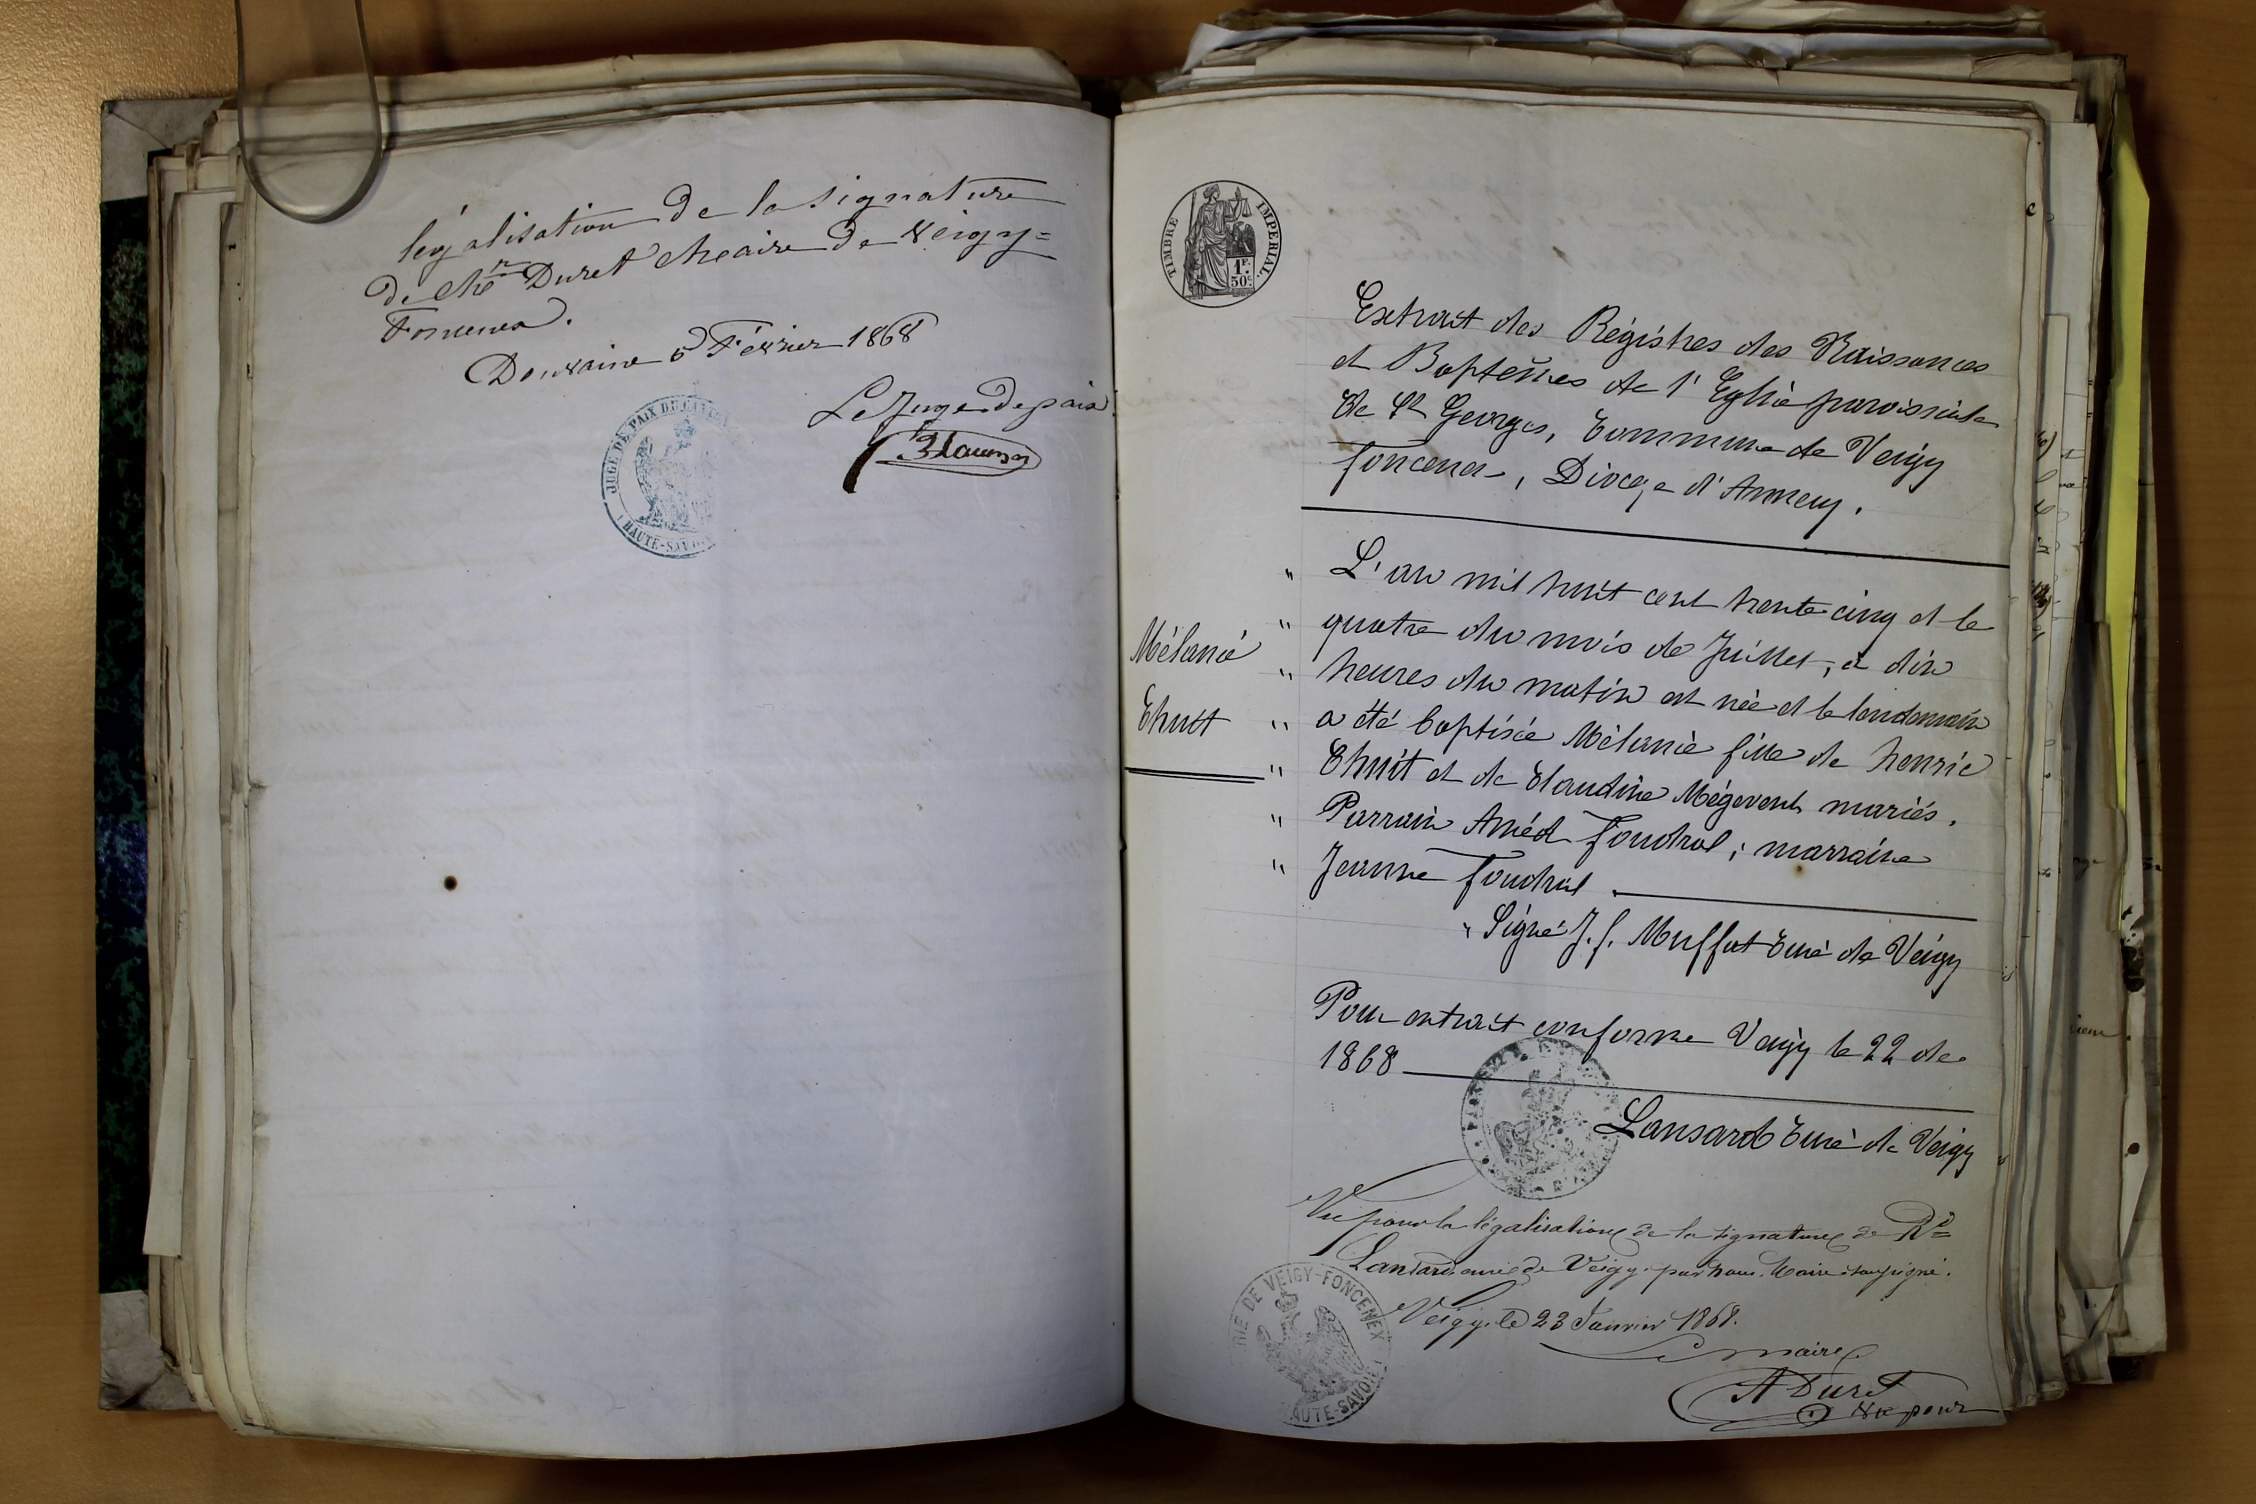 légalisation de la signature
de Mr Duret Maire de Veigy=
Foncenex.
Douvaine 6 Février 1868
Le Juge de paix
JUGE DE PAIX DU CANTON
HAUTE-SAVOIE
TIMBRE IMPERIAL.
1F.
50c.
Extrait des Régistres des Naissances
et Baptêmes de l'Eglise paroissiale
de St Georges, Commune de Veigy
foncenex, Diocèse d'Annecy.
" L'an mil huit cent trente cinq et le
" quatre du mois de Juillet, à dix
Mélanie
" heures du matin est née et le lendemain
Thuit
" a été baptisée Mélanie fille de henrie
" Thuit et de Claudine Mégevent mariés.
" Parrain Amed foudral; marraine
" Jeanne foudral.
" Signé J. f. Muffat Curé de Veigy
Pour extrait conforme Veigy le 22 de
1868
Lansard Curé de Veigy
Vu pour la légalisation de la signature de Rd
Lansard curé de Veigy par nous Maire soussigné.
Veigy, le 23 Janvier 1868.
Le maire
A Duret
Vu pour
MAIRIE DE VEIGY-FONCENEX
HAUTE-SAVOIE